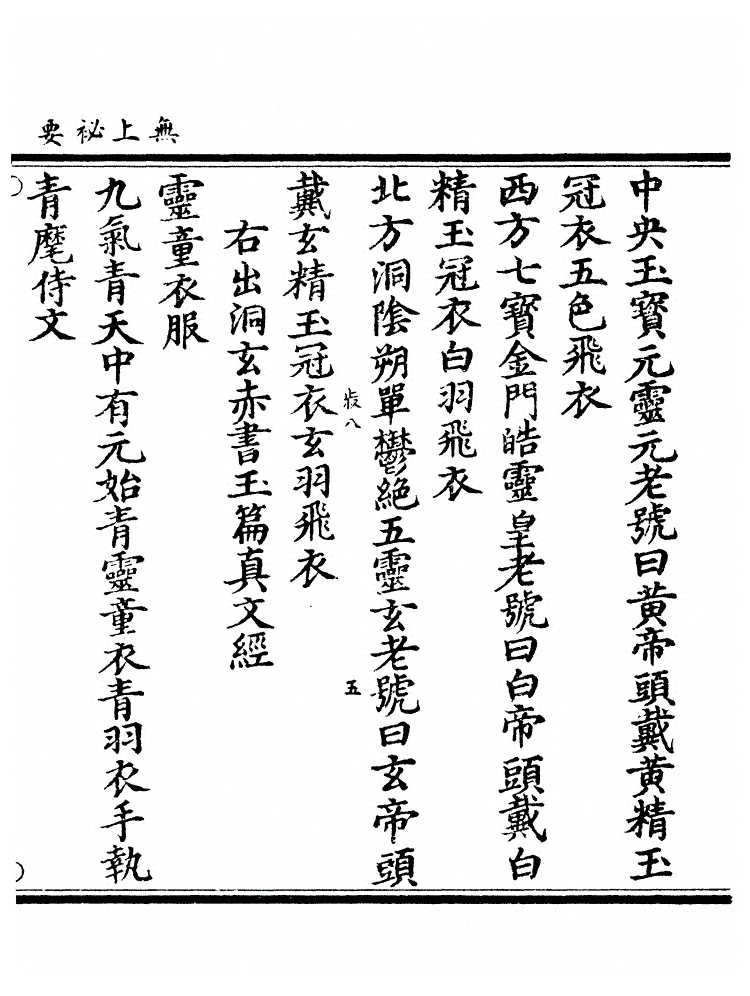 無上祕要
中央玉寳元靈元老號曰黄帝頭戴黄精玉
冠衣五色飛衣
西方七寳金門皓靈皇老號曰白帝頭戴白
精玉冠衣白羽飛衣
北方洞陰朔單鬱絕五靈玄老號曰玄帝頭
戴玄精玉冠衣玄羽飛衣
五
右出洞玄赤書玉篇真文經
靈童衣服
九氣青天中有元始青靈童衣青羽衣手執
青麾侍文